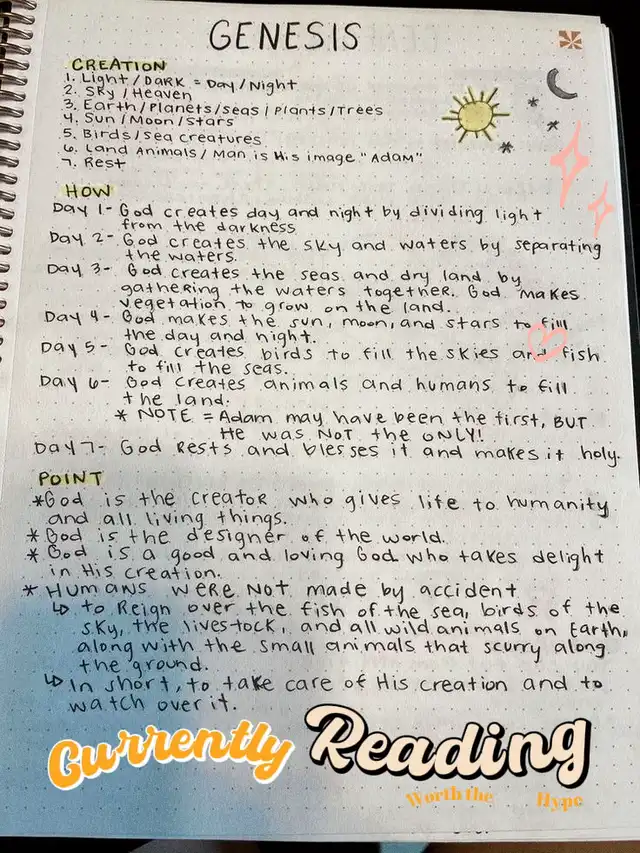 GENESIS
CREATION
1. Light / DARK = Day / Night
2. Sky / Heaven
3. Earth / Planets / seas / Plants / Trees
4. Sun / Moon / Stars
5. Birds / sea creatures
6. Land Animals / Man is His image "Adam"
7. Rest
HOW
Day 1- God creates day and night by dividing light
from the darkness
Day 2- God creates the sky and waters by separating
the waters.
Day 3- God creates the seas and dry land by
gathering the waters together. God makes
vegetation to grow on the land.
Day 4- God makes the sun, moon, and stars to fill
the day and night.
Day 5- God creates birds to fill the skies and fish
to fill the seas.
Day 6- God creates animals and humans to fill
the land.
* NOTE = Adam may have been the first, BUT
He was NOT the ONLY!
Day 7- God Rests and blesses it and makes it holy.
POINT
*God is the creator who gives life to humanity
and all living things.
* God is the designer of the world.
* God is a good and loving God who takes delight
in His creation.
* Humans were NOT made by accident
↳ to Reign over the fish of the sea, birds of the
sky, the livestock, and all wild animals on Earth,
along with the small animals that scurry along
the ground.
↳ In short, to take care of His creation and to
watch over it.
Currently Reading
Worth the Hype